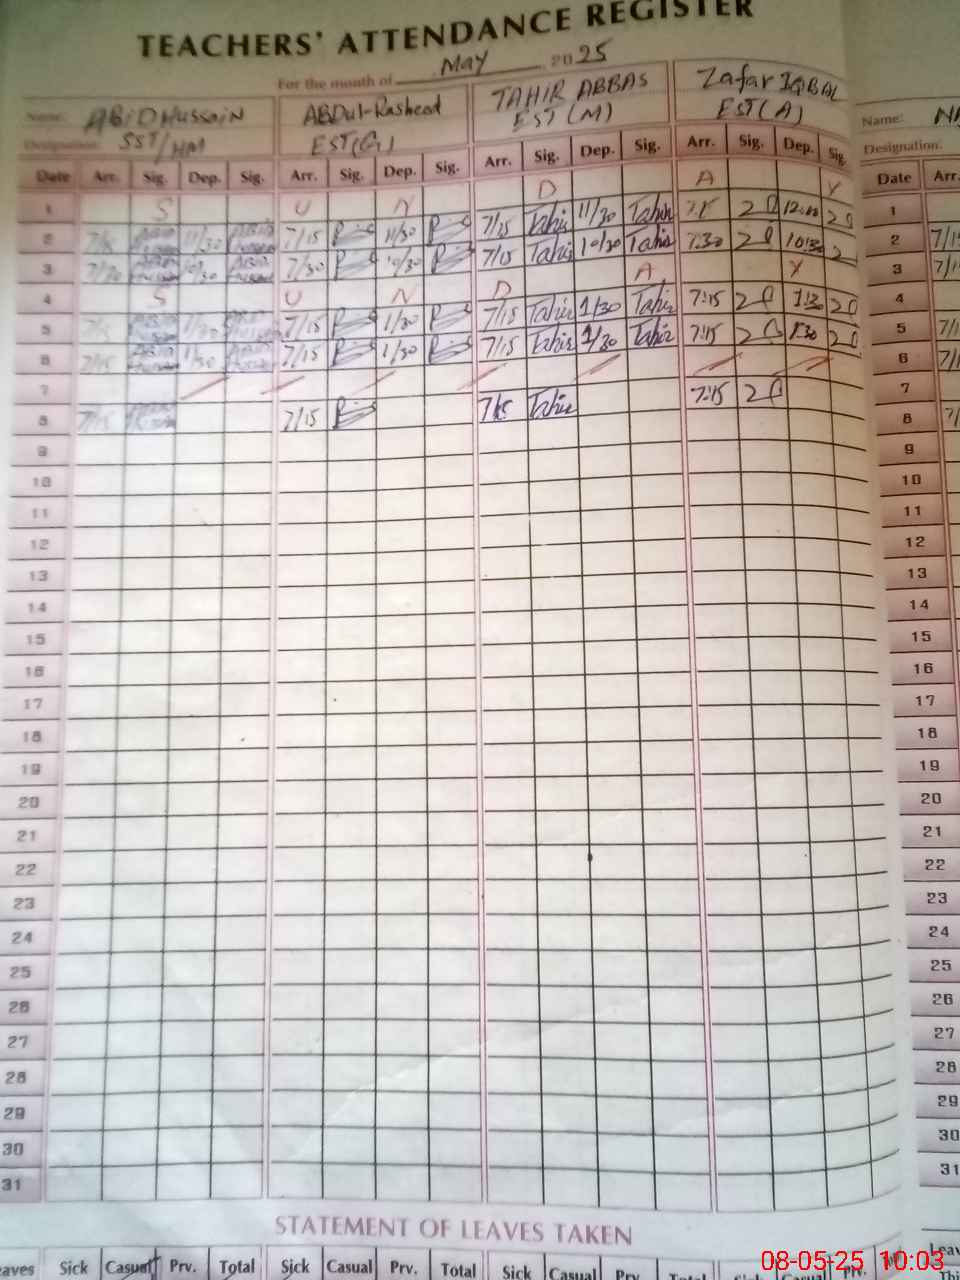 TEACHERS' ATTENDANCE REGISTER
For the month of May 2025
Name: ABiD Hussain ABDul-Rasheed TAHIR ABBAS Zafar IQBAL Name:
Designation: SST/HM EST(G) EST(M) EST(A) Designation:
Date Arr. Sig. Dep. Sig. Arr. Sig. Dep. Sig. Arr. Sig. Dep. Sig. Arr. Sig. Dep. Sig. Date Arr.
1 S U N D A Y 1
2 7/15 11/30 7/15 11/30 7/15 Tahir 11/30 Tahir 7:15 2
3 7/30 10/30 7/30 10/30 7/15 Tahir 10/30 Tahir 7:30 10:30 3
4 S U N D A Y 4
5 1/30 7/15 1/30 7/15 Tahir 1/30 Tahir 7:15 1:30 5
6 7/15 1/30 7/15 1/30 7/15 Tahir 1/30 Tahir 7:15 1:30 6
7 7
8 7/15 7/15 7/15 Tahir 7:15 8
9 9
10 10
11 11
12 12
13 13
14 14
15 15
16 16
17 17
18 18
19 19
20 20
21 21
22 22
23 23
24 24
25 25
26 26
27 27
28 28
29 29
30 30
31 31
STATEMENT OF LEAVES TAKEN
Sick Casual Prv. Total Sick Casual Prv. Total Sick Casual Prv. Total Sick Casual
08-05-25 10:03